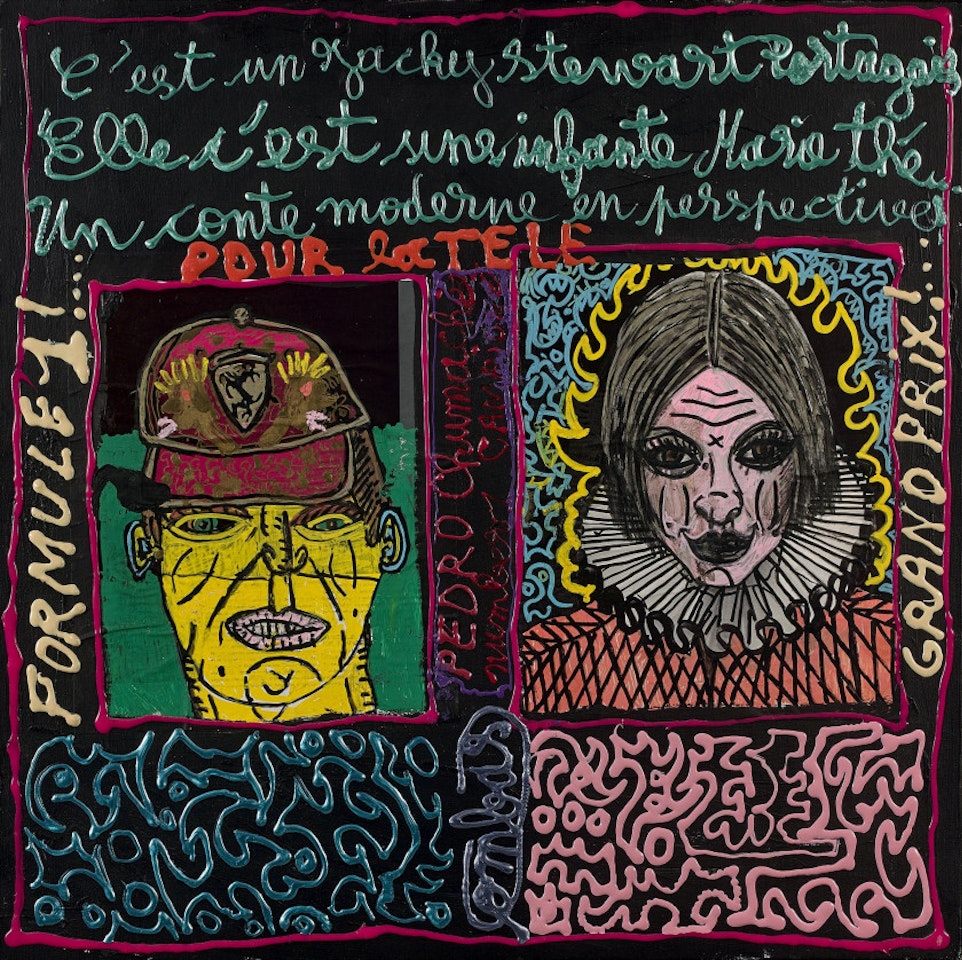 C'est un Jackey Stewart Portugais
Elle c'est une infante Maria thé...
Un conte moderne en perspective
POUR la TELE
FORMULE 1!...
PEDRO Chumacher
numéro
GRAND PRIX!...
Combas